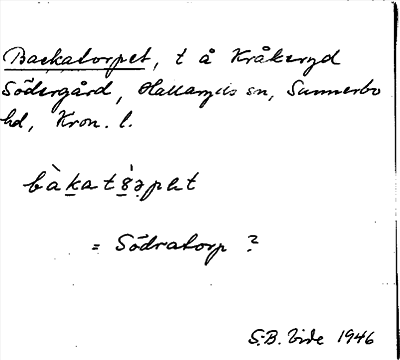 Backatorpet, t å Kråkeryd
Södergård, Hallaryds sn, Sunnerbo
hd, Kron. l.
= Södratorp ?
S.-B. Vide 1946